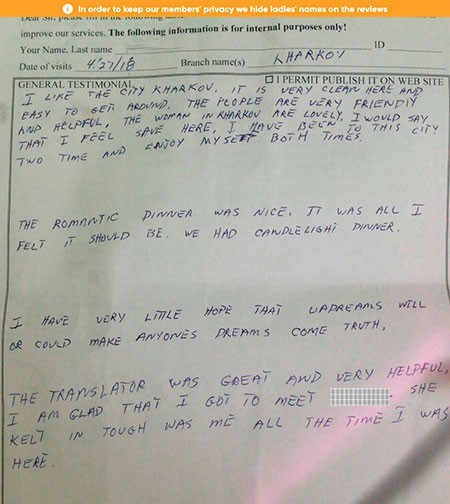 In order to keep our members' privacy we hide ladies' names on the reviews
improve our services. The following information is for internal purposes only!
Your Name, Last name ID
Date of visits 4/27/18 Branch name(s) KHARKOV
GENERAL TESTIMONIAL I PERMIT PUBLISH IT ON WEB SITE
I LIKE THE CITY KHARKOV, IT IS VERY CLEAN HERE AND
EASY TO GET AROUND. THE PLOPLE ARE VERY FRIENDLY
AND HELPFUL, THE WOMAN IN KHARKOV ARE LOVELY, I WOULD SAY
THAT I FEEL SAVE HERE, I HAVE BEEN TO THIS CITY
TWO TIME AND ENJOY MYSELF BOTH TIMES.
THE ROMANTIC DINNER WAS NICE, IT WAS ALL I
FELT IT SHOULD BE. WE HAD CANDLELIGHT DINNER.
I HAVE VERY LITTLE HOPE THAT UADREAMS WILL
OR COULD MAKE ANYONES DREAMS COME TRUTH,
THE TRANSLATOR WAS GREAT AND VERY HELPFUL,
I AM GLAD THAT I GOT TO MEET . SHE
KELT IN TOUGH WAS ME ALL THE TIME I WAS
HERE.